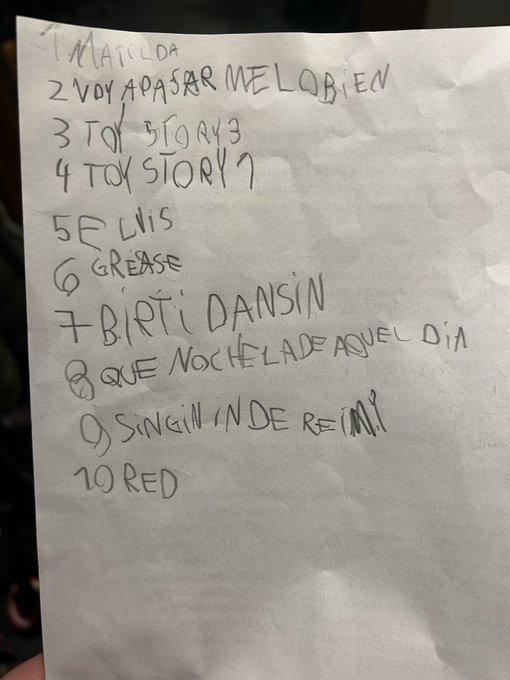 1 MATILDA
2 VOY APASAR MELOBIEN
3 TOY STORY 3
4 TOY STORY 1
5 ELVIS
6 GREASE
7 BIRTI DANSIN
8 QUE NOCHE LADE AQUEL DIA
9 SINGIN IN DE REIM?
10 RED